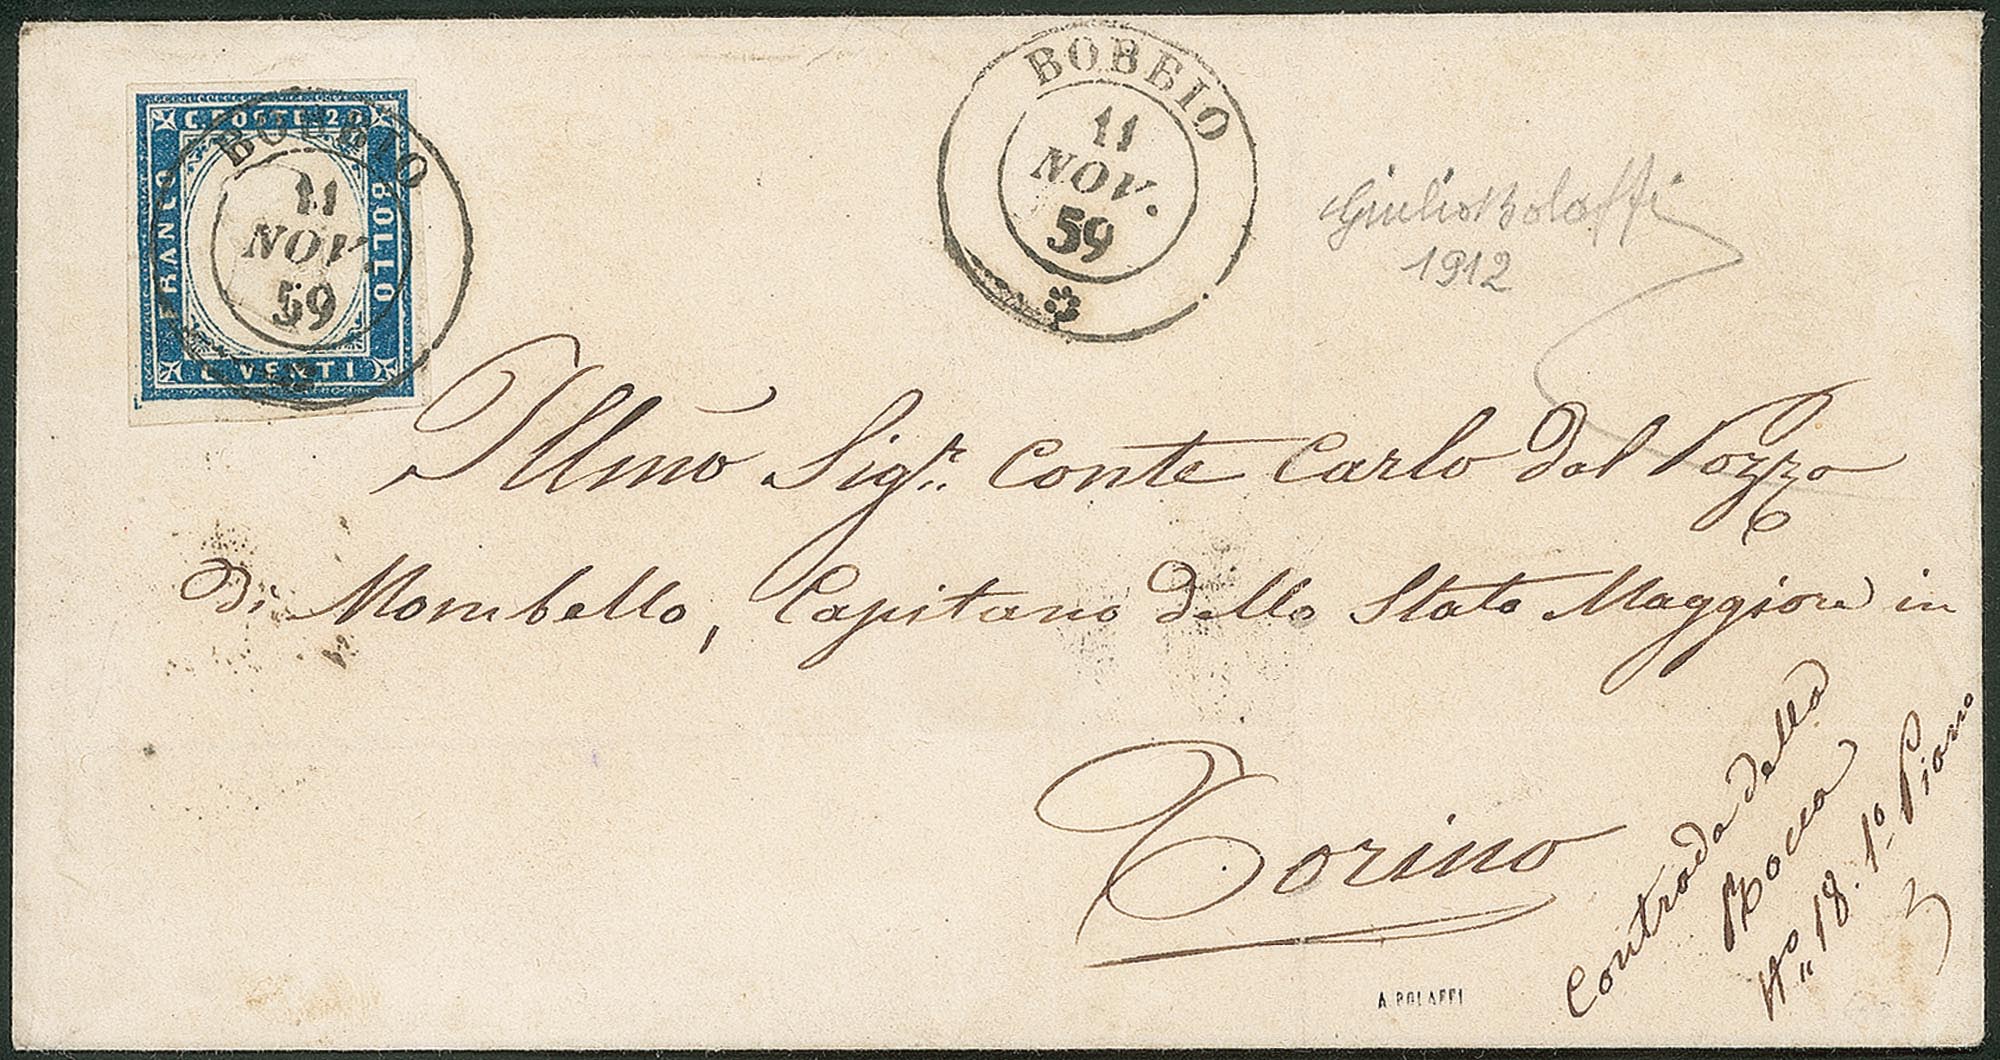 C. POSTE 20
FRANCO
BOLLO
C. VENTI
BOBBIO
11
NOV.
59
BOBBIO
11
NOV.
59
Giulio Bolaffi
1912
Illmo Sigr. Conte Carlo dal Pozzo
Di Mombello, Capitano dello Stato Maggiore in
Torino
Contrada della
Rocca
No. 18. 1o Piano
A. BOLAFFI